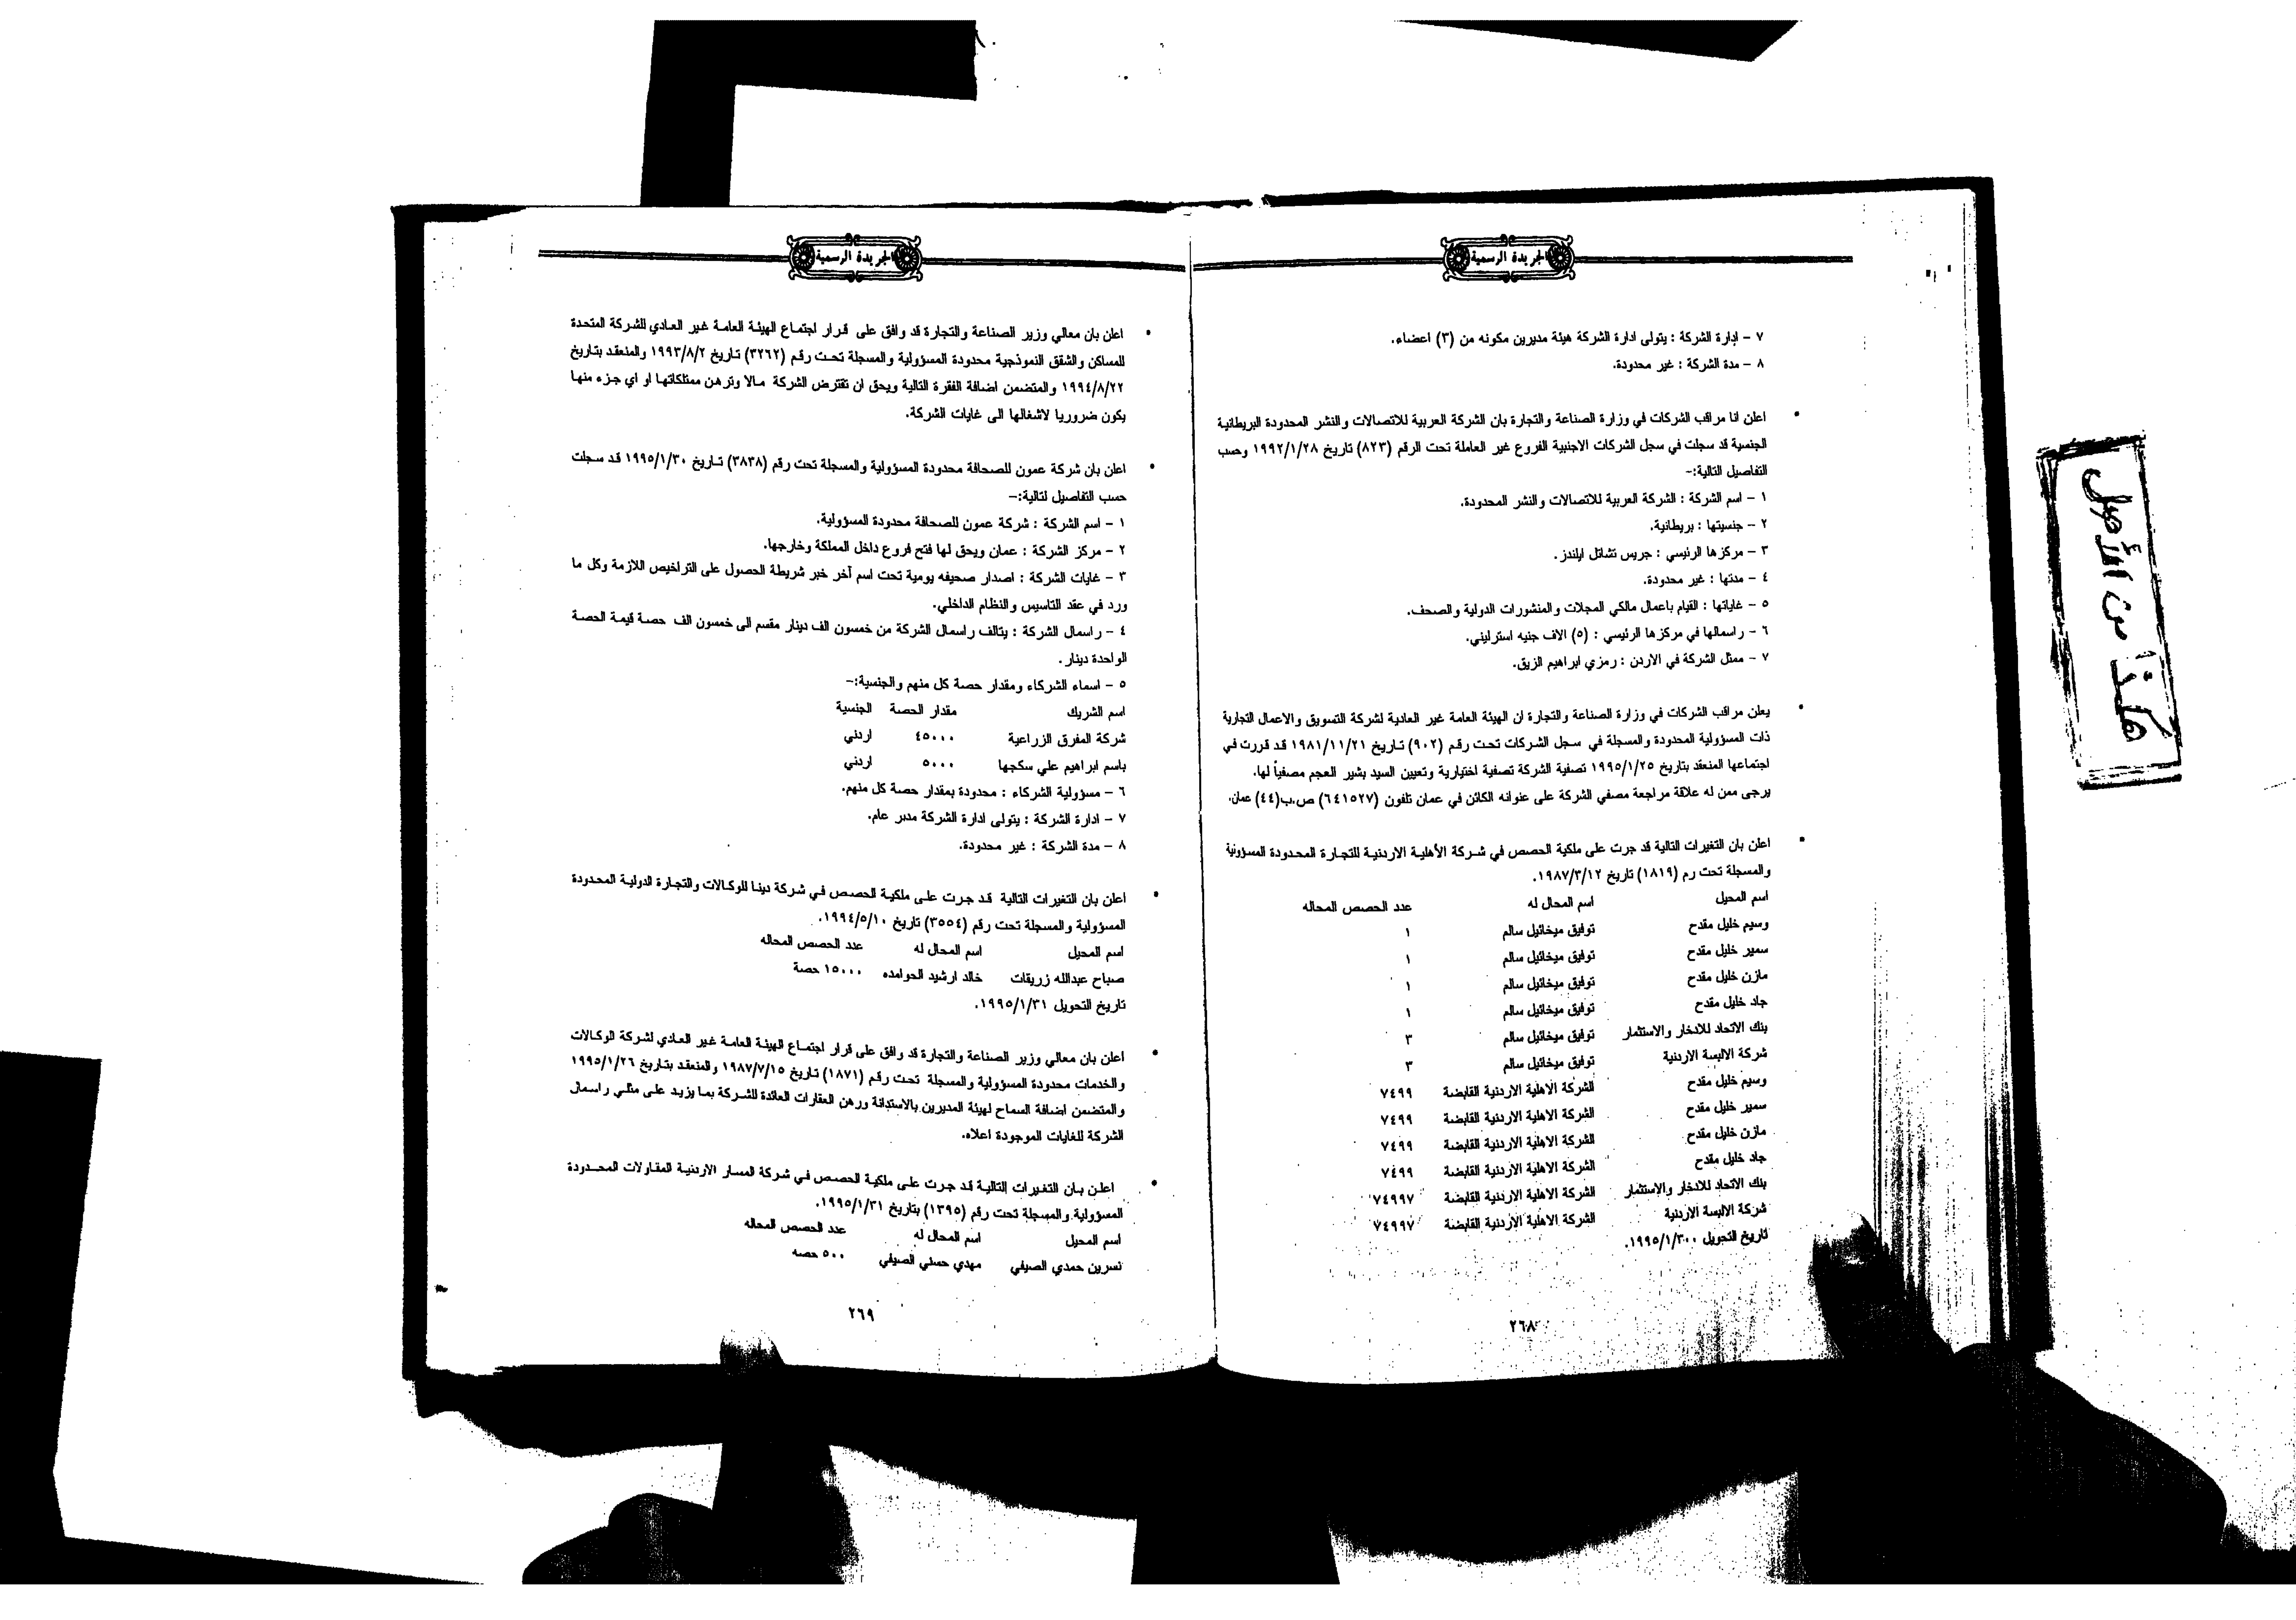 الجريدة الرسمية
٧ – إدارة الشركة : يتولى ادارة الشركة هيئة مديرين مكونه من (٣) اعضاء.
٨ – مدة الشركة : غير محدودة.
• اعلن انا مراقب الشركات في وزارة الصناعة والتجارة بان الشركة العربية للاتصالات والنشر المحدودة البريطانية
الجنسية قد سجلت في سجل الشركات الاجنبية الفروع غير العاملة تحت الرقم (٨٢٣) تاريخ ١٩٩٢/١/٢٨ وحسب
التفاصيل التالية:–
١ – اسم الشركة : الشركة العربية للاتصالات والنشر المحدودة.
٢ – جنسيتها : بريطانية.
٣ – مركزها الرئيسي : جريس تشائل ايلندز.
٤ – مدتها : غير محدودة.
٥ – غاياتها : القيام باعمال مالكي المجلات والمنشورات الدولية والصحف.
٦ – راسمالها في مركزها الرئيسي : (٥) الاف جنيه استرليني.
٧ – ممثل الشركة في الاردن : رمزي ابراهيم الزيق.
• يعلن مراقب الشركات في وزارة الصناعة والتجارة ان الهيئة العامة غير العادية لشركة التسويق والاعمال التجارية
ذات المسؤولية المحدودة والمسجلة في سجل الشركات تحت رقم (٩٠٢) تاريخ ١٩٨١/١١/٢١ قد قررت في
اجتماعها المنعقد بتاريخ ١٩٩٥/١/٢٥ تصفية الشركة تصفية اختيارية وتعيين السيد بشير العجم مصفياً لها.
يرجى ممن له علاقة مراجعة مصفي الشركة على عنوانه الكائن في عمان تلفون (٦٤١٥٢٧) ص.ب(٤٤) عمان.
• اعلن بان التغيرات التالية قد جرت على ملكية الحصص في شركة الأهلية الاردنية للتجارة المحدودة المسؤولية
والمسجلة تحت رم (١٨١٩) تاريخ ١٩٨٧/٣/١٢.
اسم المحيل اسم المحال له عدد الحصص المحاله
وسيم خليل مقدح توفيق ميخائيل سالم ١
سمير خليل مقدح توفيق ميخائيل سالم ١
مازن خليل مقدح توفيق ميخائيل سالم ١
جاد خليل مقدح توفيق ميخائيل سالم ١
بنك الاتحاد للادخار والاستثمار توفيق ميخائيل سالم ٣
شركة الالبسة الاردنية توفيق ميخائيل سالم ٣
وسيم خليل مقدح الشركة الاهلية الاردنية القابضة ٧٤٩٩
سمير خليل مقدح الشركة الاهلية الاردنية القابضة ٧٤٩٩
مازن خليل مقدح الشركة الاهلية الاردنية القابضة ٧٤٩٩
جاد خليل مقدح الشركة الاهلية الاردنية القابضة ٧٤٩٩
بنك الاتحاد للادخار والاستثمار الشركة الاهلية الاردنية القابضة ٧٤٩٩٧
شركة الالبسة الاردنية الشركة الاهلية الاردنية القابضة ٧٤٩٩٧
تاريخ التحويل ١٩٩٥/١/٣٠.
٢٦٨
الجريدة الرسمية
• اعلن بان معالي وزير الصناعة والتجارة قد وافق على قرار اجتماع الهيئة العامة غير العادي للشركة المتحدة
للمساكن والشقق النموذجية محدودة المسؤولية والمسجلة تحت رقم (٣٢٦٢) تاريخ ١٩٩٣/٨/٢ والمنعقد بتاريخ
١٩٩٤/٨/٢٢ والمتضمن اضافة الفقرة التالية ويحق ان تقترض الشركة مالا وترهن ممتلكاتها او اي جزء منها
يكون ضروريا لاشغالها الى غايات الشركة.
• اعلن بان شركة عمون للصحافة محدودة المسؤولية والمسجلة تحت رقم (٣٨٣٨) تاريخ ١٩٩٥/١/٣٠ قد سجلت
حسب التفاصيل لتالية:–
١ – اسم الشركة : شركة عمون للصحافة محدودة المسؤولية.
٢ – مركز الشركة : عمان ويحق لها فتح فروع داخل المملكة وخارجها.
٣ – غايات الشركة : اصدار صحيفه يومية تحت اسم آخر خبر شريطة الحصول على التراخيص اللازمة وكل ما
ورد في عقد التاسيس والنظام الداخلي.
٤ – راسمال الشركة : يتالف راسمال الشركة من خمسون الف دينار مقسم الى خمسون الف حصة قيمة الحصة
الواحدة دينار.
٥ – اسماء الشركاء ومقدار حصة كل منهم والجنسية:–
اسم الشريك مقدار الحصة الجنسية
شركة المفرق الزراعية ٤٥٠٠٠ اردني
باسم ابراهيم علي سكجها ٥٠٠٠ اردني
٦ – مسؤولية الشركاء : محدودة بمقدار حصة كل منهم.
٧ – ادارة الشركة : يتولى ادارة الشركة مدير عام.
٨ – مدة الشركة : غير محدودة.
• اعلن بان التغيرات التالية قد جرت على ملكية الحصص في شركة دينا للوكالات والتجارة الدولية المحدودة
المسؤولية والمسجلة تحت رقم (٣٥٥٤) تاريخ ١٩٩٤/٥/١٠.
اسم المحيل اسم المحال له عدد الحصص المحاله
صباح عبدالله زريقات خالد ارشيد الحوامده ١٥٠٠٠ حصة
تاريخ التحويل ١٩٩٥/١/٣١.
• اعلن بان معالي وزير الصناعة والتجارة قد وافق على قرار اجتماع الهيئة العامة غير العادي لشركة الوكالات
والخدمات محدودة المسؤولية والمسجلة تحت رقم (١٨٧١) تاريخ ١٩٨٧/٧/١٥ والمنعقد بتاريخ ١٩٩٥/١/٢٦
والمتضمن اضافة السماح لهيئة المديرين بالاستدانة ورهن العقارات العائدة للشركة بما يزيد على مثلي راسمال
الشركة للغايات الموجودة اعلاه.
• اعلن بان التغيرات التالية قد جرت على ملكية الحصص في شركة المسار الاردنية المقاولات المحدودة
المسؤولية والمسجلة تحت رقم (١٣٩٥) بتاريخ ١٩٩٥/١/٣١.
اسم المحيل اسم المحال له عدد الحصص المحاله
نسرين حمدي الصيفي مهدي حسني الصيفي ٥٠٠ حصه
٢٦٩
هكذا من الأصل